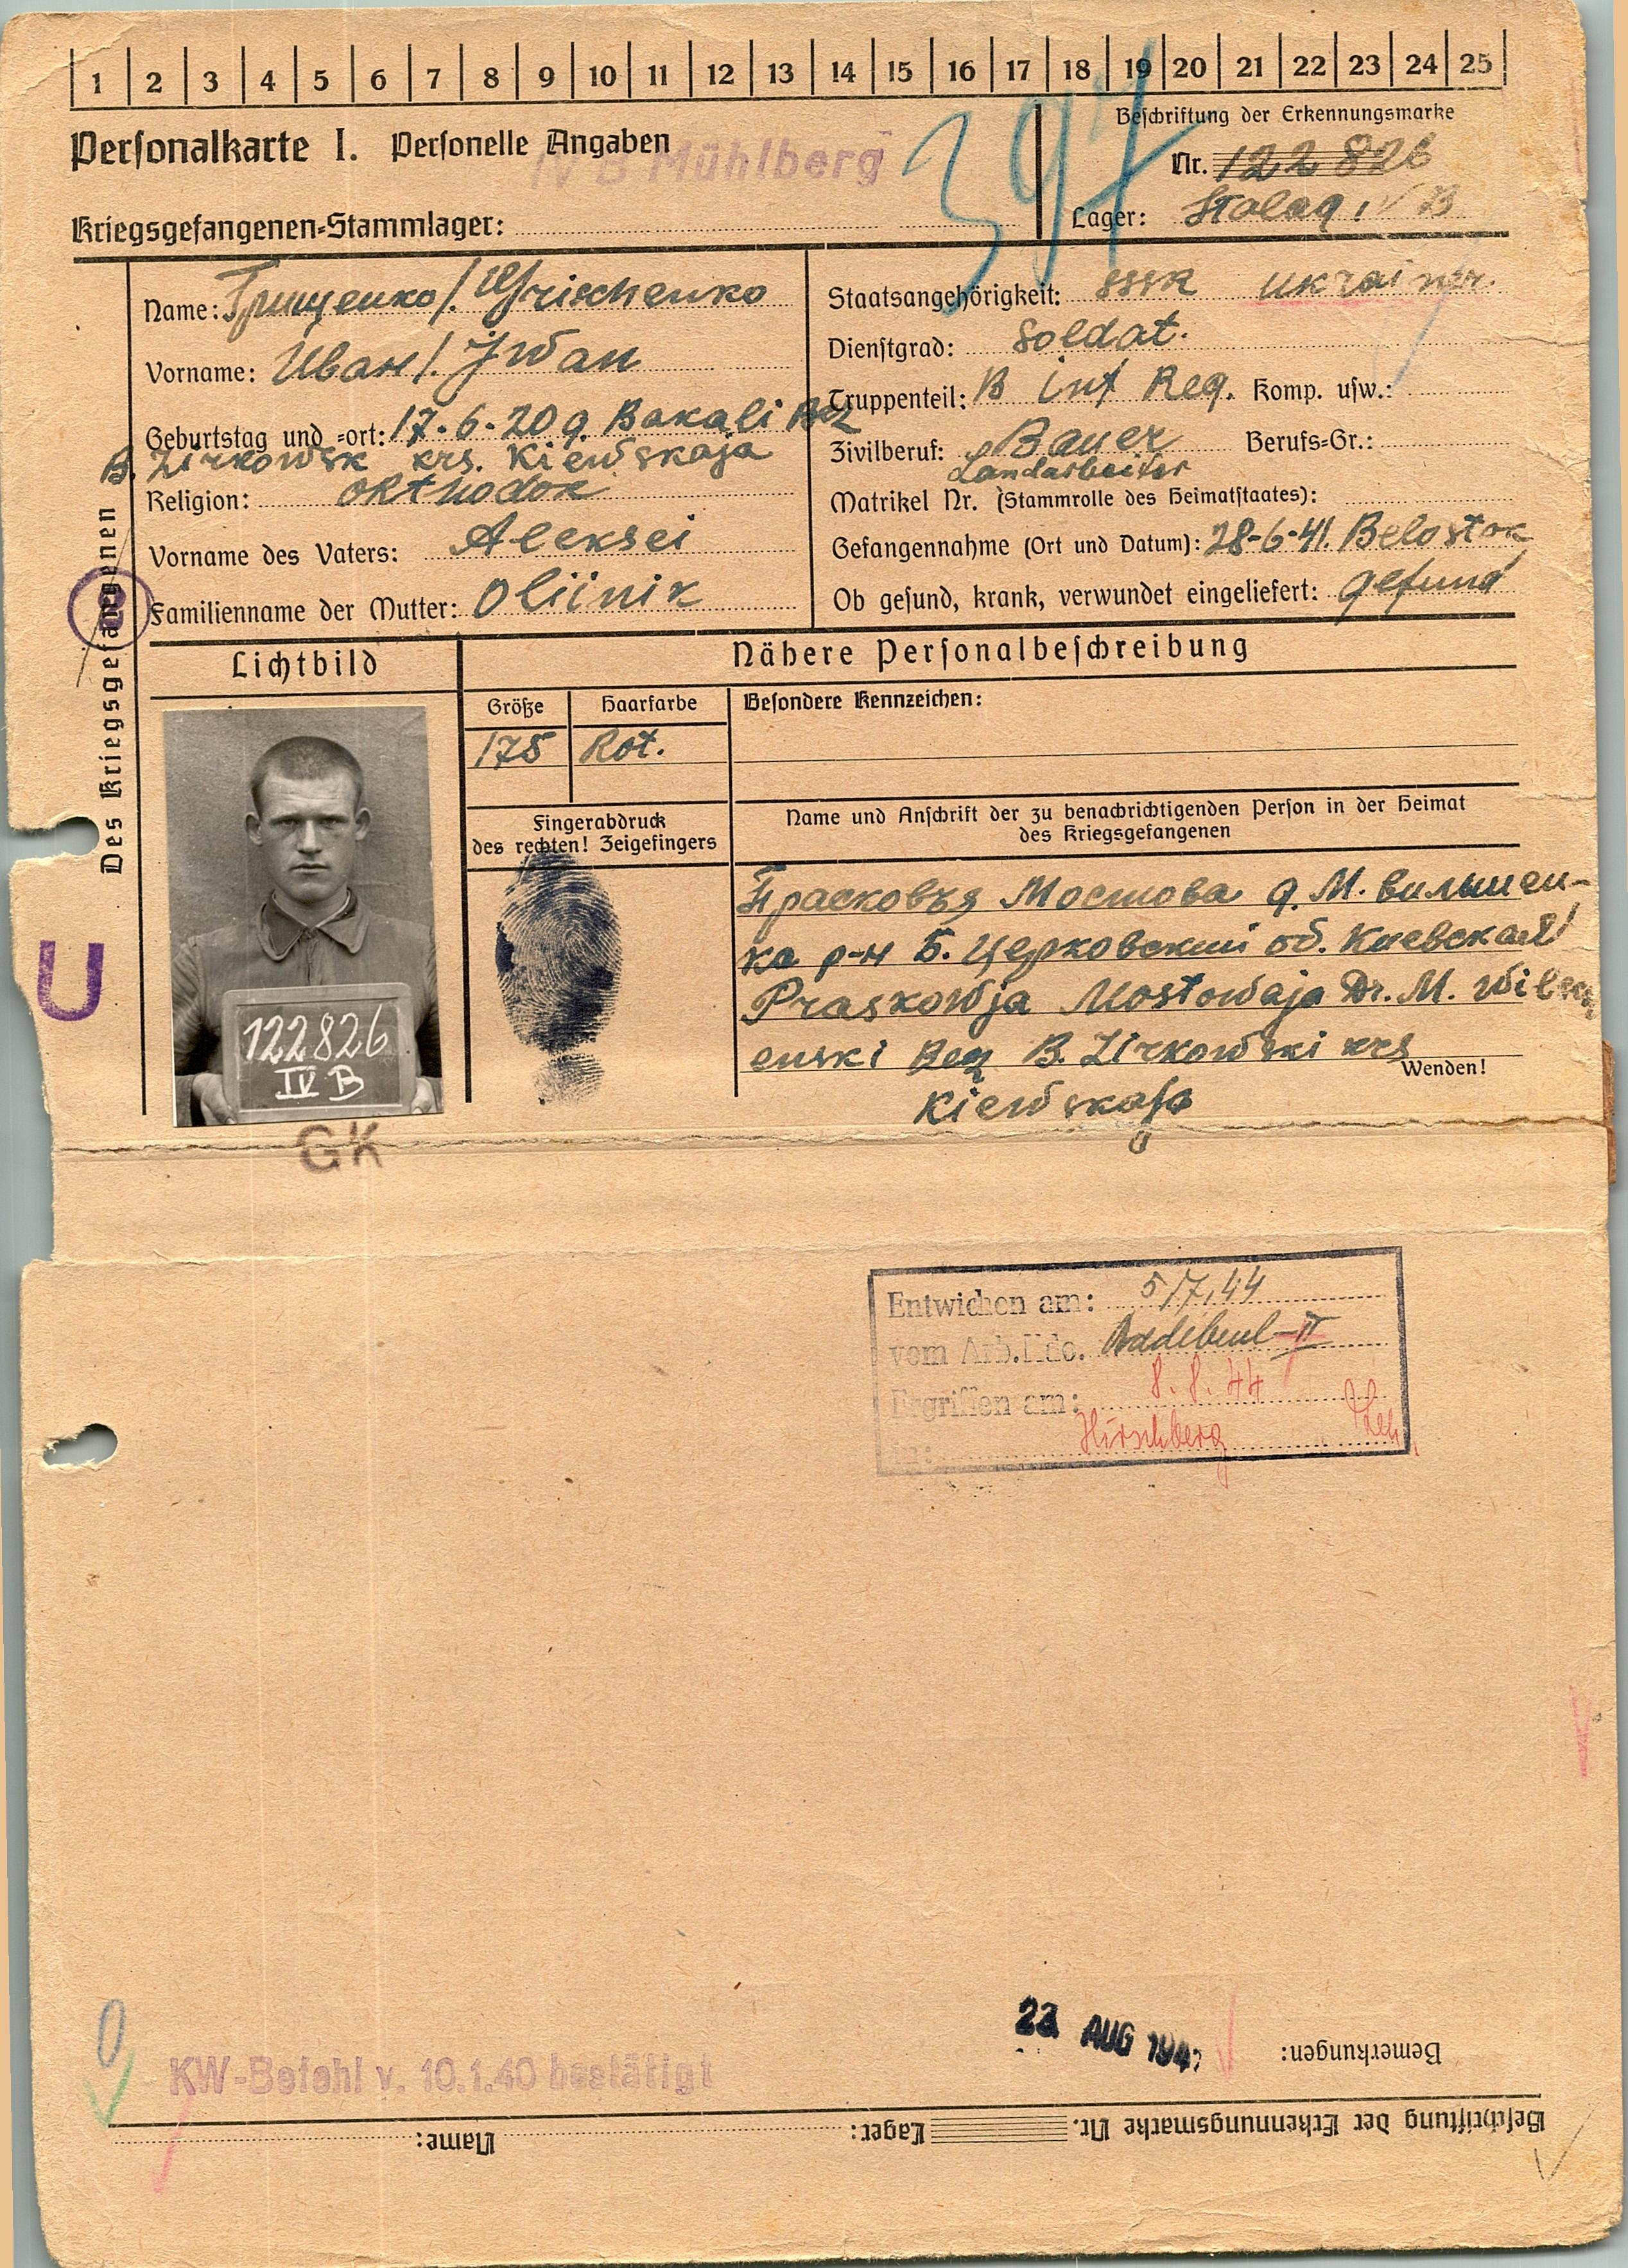 1 2 3 4 5 6 7 8 9 10 11 12 13 14 15 16 17 18 19 20 21 22 23 24 25
Personalkarte I. Personelle Angaben
IV B Mühlberg
397
Beschriftung der Erkennungsmarke
Nr. 122826
Kriegsgefangenen-Stammlager:
Lager: Stalag IV B
Des Kriegsgefangenen
Name: Грищенко /. Grischenko
Vorname: Иван /. Jwan
Geburtstag und =ort: 17-6-20 g. Bakali Bez
B. Zirkowsk krs. Kiewskaja
Religion: orthodox
Vorname des Vaters: Aleksei
Familienname der Mutter: Oliinik
Staatsangehörigkeit: SSSR Ukrainer.
Dienstgrad: Soldat.
Truppenteil: B inf Reg. Komp. usw.:
Zivilberuf: Bauer Berufs=Gr.:
Landarbeiter
Matrikel Nr. (Stammrolle des Heimatstaates):
Gefangennahme (Ort und Datum): 28-6-41. Belostok
Ob gesund, krank, verwundet eingeliefert: gesund
Lichtbild
Nähere Personalbeschreibung
Größe
Haarfarbe
Besondere Kennzeichen:
175
Rot.
Fingerabdruck
des rechten! Zeigefingers
Name und Anschrift der zu benachrichtigenden Person in der Heimat
des Kriegsgefangenen
Прасковья Мостова д. М. вильшен-
ка р-н Б. Церковский об. Киевская /
Praskowja Mostowaja Dr. M.
enski Bez B. Zirkowski krs
Kiewskaja
Wenden!
U
122826
IV B
GK
Entwichen am: 5/7.44
vom Arb.Kdo. Radebeul-II
Ergriffen am: 8.8.44
in: Hirschberg
Bemerkungen:
23 AUG 194
KW-Befehl v. 10.1.40 bestätigt
Beschriftung der Erkennungsmarke Nr. Lager: Name: